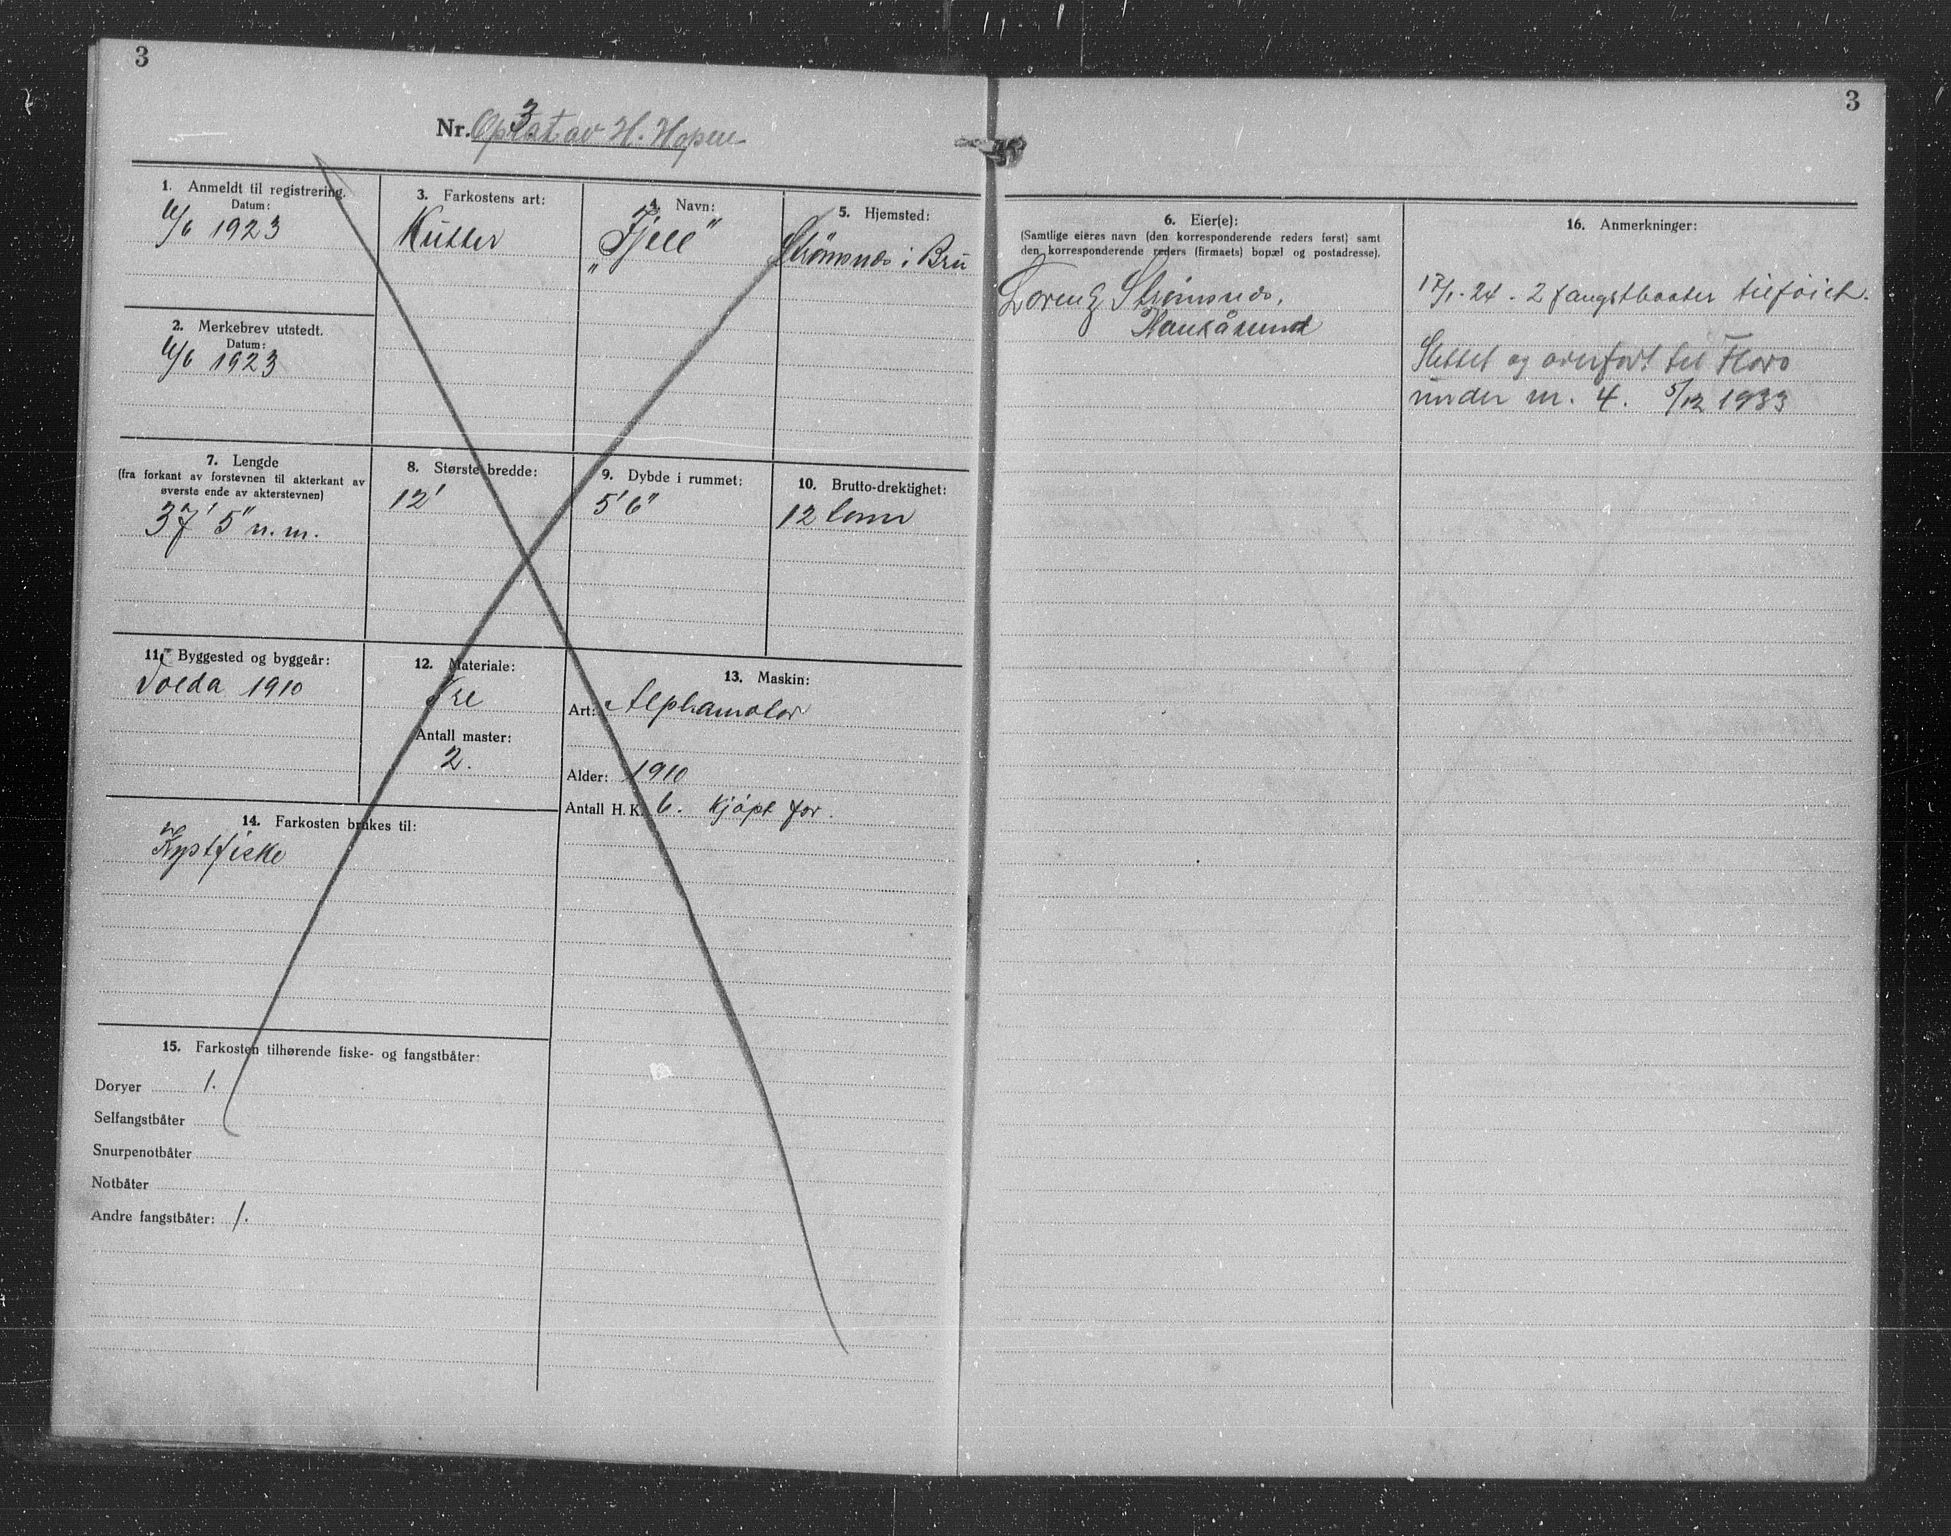 3
Nr. 3 Optat av H. Hopen
1. Anmeldt til registrering.
Datum:
6/6 1923
3. Farkostens art:
Kutter
4. Navn:
„Fjell"
5. Hjemsted:
Strömsnes i Bru
2. Merkebrev utstedt.
Datum:
6/6 1923
7. Lengde
(fra forkant av forstevnen til akterkant av
øverste ende av akterstevnen)
37' 5" n. m.
8. Største bredde:
12'
9. Dybde i rummet:
5' 6"
10. Brutto-drektighet:
12 tonn
11. Byggested og byggeår:
Volda 1910
12. Materiale:
Tre
Antall master:
2.
13. Maskin:
Art: Alphamotor
Alder: 1910
Antall H. K. 6. kjöpt for.
14. Farkosten brukes til:
Kystfiske
15. Farkosten tilhørende fiske- og fangstbåter:
Doryer 1.
Selfangstbåter
Snurpenotbåter
Notbåter
Andre fangstbåter: 1.
3
6. Eier(e):
(Samtlige eieres navn (den korresponderende reders først) samt
den korresponderende reders (firmaets) bopæl og postadresse).
Lorentz Strömsnes,
Haukåsund
16. Anmerkninger:
17/1. 24. 2 fangstbaater tilföiet.
Slettet og overfört til Florö
under nr. 4. 5/12 1933